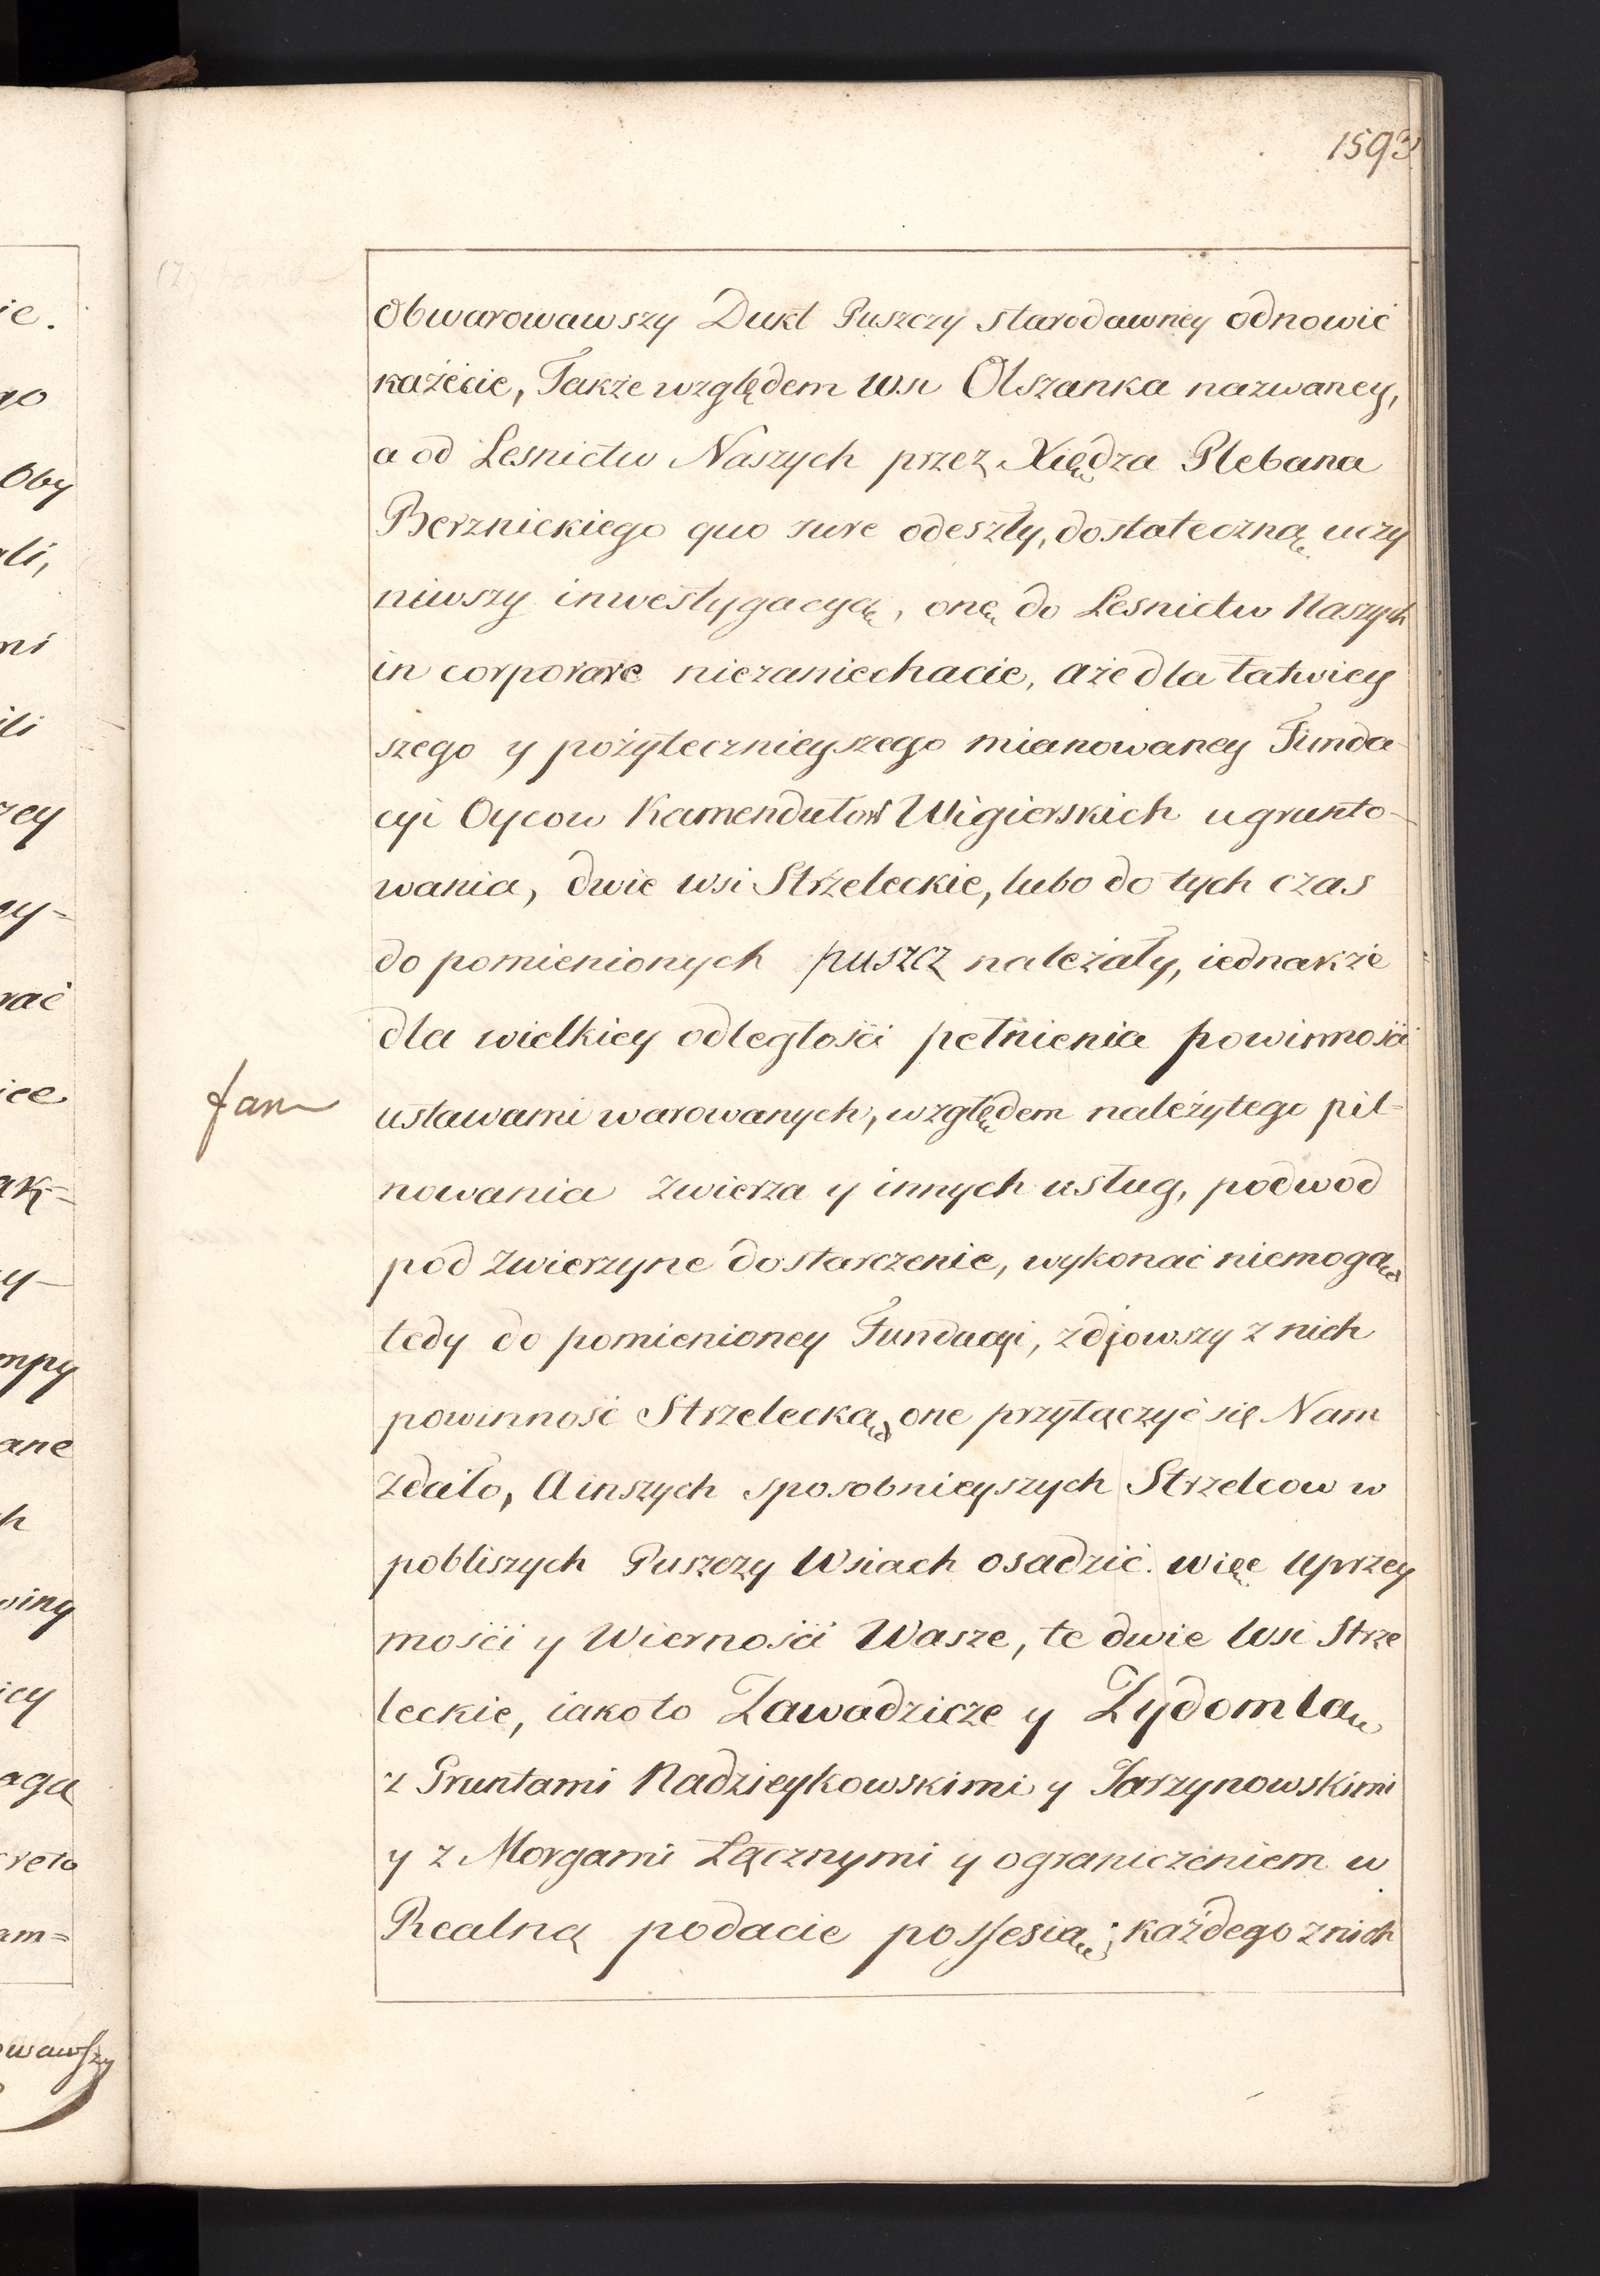 1593
Obwarowawszy Dukt Puszczy starodawney odnowić
każećie, Także względem Wsi Olszanka nazwaney,
a od Lesnictw Naszych przez Xiędza Plebana
Berznickiego quo iure odeszły, dostateczną uczy
niwszy inwestygacyą, oną do Lesnictw Naszych
in corporare niezaniechacie, aże dla łatwiey
szego y pożytecznieyszego mianowaney Funda
cyi Oycow Kamendułow Wigierskich ugrunto-
wania, dwie wsi Strzeleckie, lubo do tych czas
do pomienionych puszcz należały, iednakże
dla wielkiey odległości pełnienia powinności
ustawami warowanych, względem należytego pil-
nowania zwierza y innych usług, podwod
pod zwierzyne dostarczenie, wykonać niemogą
tedy do pomienioney Fundacyi, zdjowszy z nich
powinność Strzelecką, one przyłączyć się Nam
zdało, A inszych sposobnieyszych Strzelcow w
pobliszych Puszczy Wsiach osadzić. więc Uprzey
mości y Wierności Wasze, te dwie Wsi Strze
leckie, iako to Zawadzicze y Zydomla
z Gruntami Nadzieykowskimi y Jarzynowskimi
y z Morgami Łącznymi y ograniczeniem w
Realną podacie possesią; każdego z nich